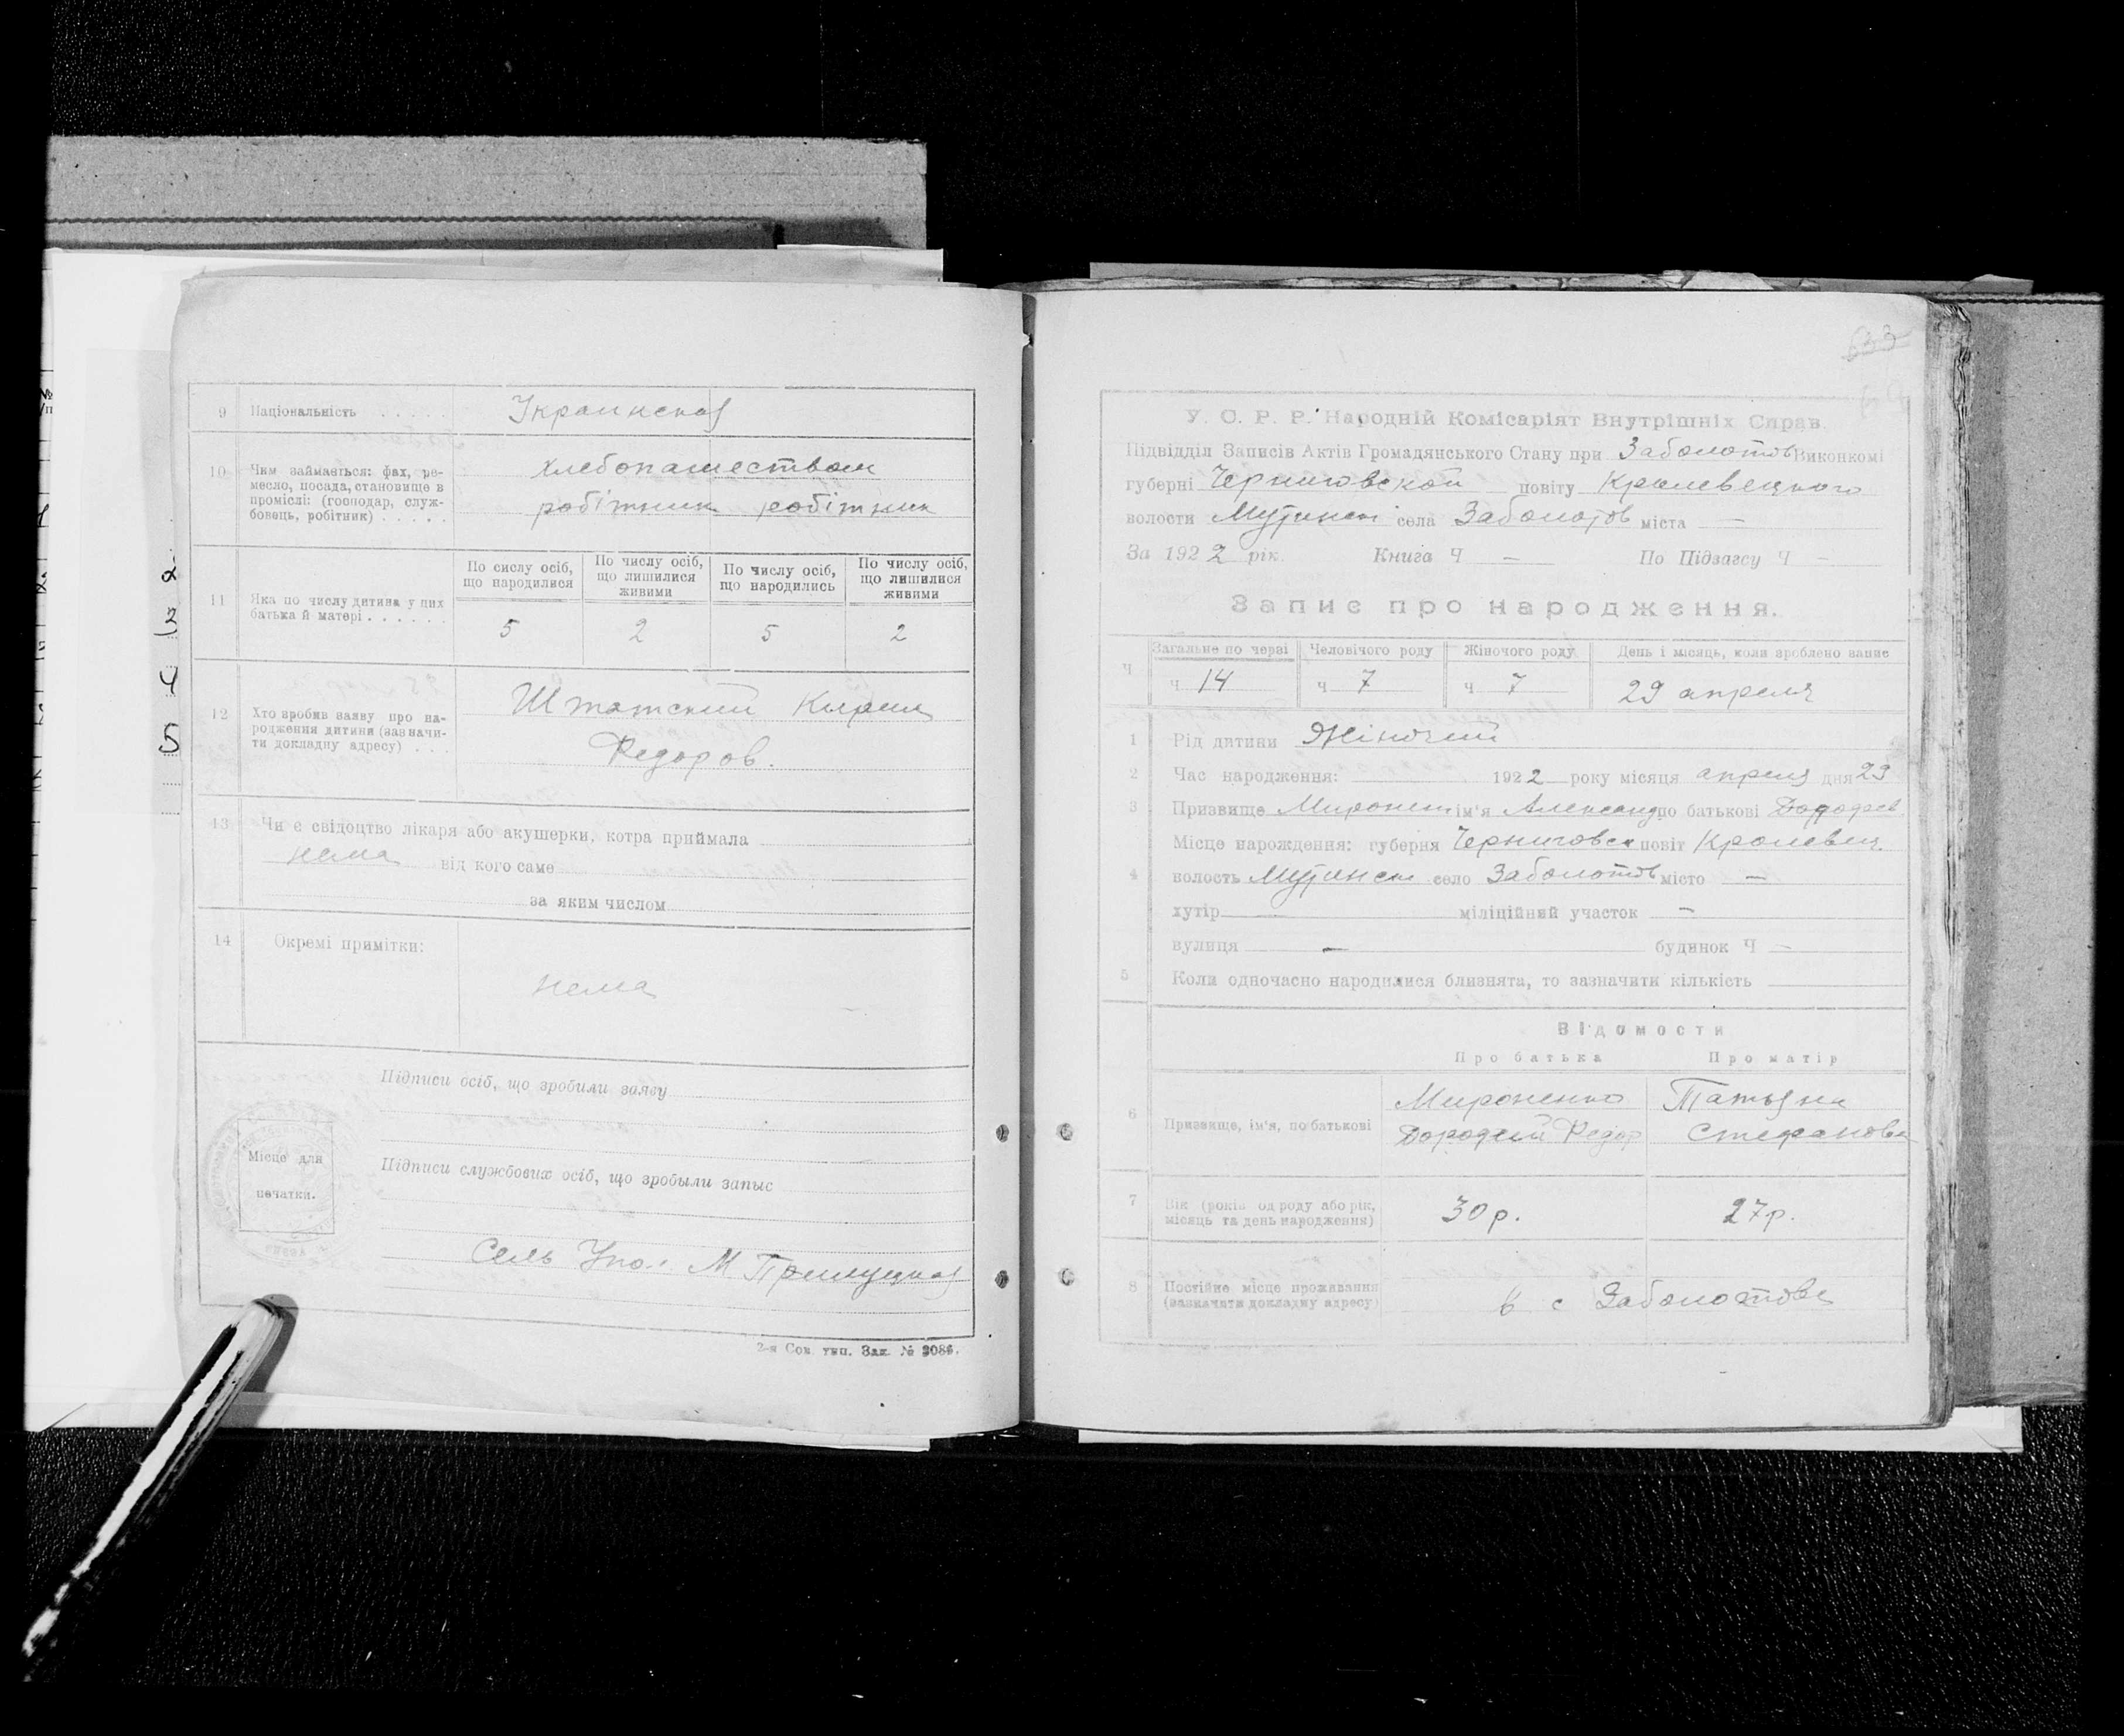 9 Національність . . . . . Украинская
10 Чим займається: фах, ре-
месло, посада, становище в
проміслі: (господар, служ-
бовець, робітник) . . . . .
хлебопашеством
робітник робітник
По сислу осіб, що народилися
По числу осіб, що лишилися живими
По числу осіб, що народились
По числу осіб, що лишилися живими
11 Яка по числу дитина у них
батька й матері . . . . . .
5 2 5 2
12 Хто зробив заяву про на-
родження дитини (зазначи-
ти докладну адресу) . . .
Штатский Кирил
Федоров.
13 Чи є свідоцтво лікаря або акушерки, котра приймала
нема від кого саме
за яким числом
14 Окремі примітки:
нема
Підписи осіб, що зробили заяву
Місце для
печатки.
Підписи службових осіб, що зробыли запыс
Сель Упол М.
2-я Сов. тип. Зак. №
5 4 3 2
633
У. С. Р. Р. Народній Комісаріят Внутрішніх Справ.
Підвідділ Записів Актів Громадянського Стану при Заболотов Виконкомі
губерні Черниговской повіту Кролевецкого
волости Мутинск села Заболотов міста —
За 1922 рік. Книга Ч — По Підзагсу Ч —
Запис про народження.
Загальне по черзі Человічого роду Жіночого роду День і місяць, коли зроблено запис
Ч ч 14 ч 7 ч 7 29 апреля
1 Рід дитини Жіночий
2 Час народження: 1922 року місяця апреля дня 29
3 Призвище Миронен ім'я Александ по батькові
Місце народження: губерня Черниговск повіт Кролевец.
4 волость Мутинск село Заболотов місто —
хутір міліційний участок —
вулиця — будинок Ч —
5 Коли одночасно народилися близнята, то зазначити кількість
Відомости
Про батька Про матір
6 Призвище, ім'я, по батькові
Мироненко Татьяна
Дорофей Федор Стефановн
7 Вік (років од роду або рік,
місяць та день народження)
30 р. 27 р.
8 Постійне місце проживання
(зазначати докладну адресу)
в с Заболотове